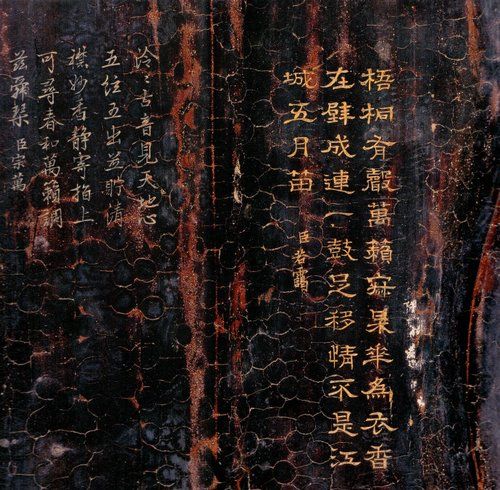 梧桐有聲萬籟寂華為衣香
在壁成連一鼓足移情不是江
城五月笛
臣若靄
泠〻古音見天地心
五位五出並貯清
襟妙香靜寄指上
可尋春和萬籟調
茲舜琴 臣宗萬